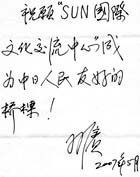 祝願“SUN國際
文化交流中心”成
为中日人民友好的
桥樑！
2007年5月